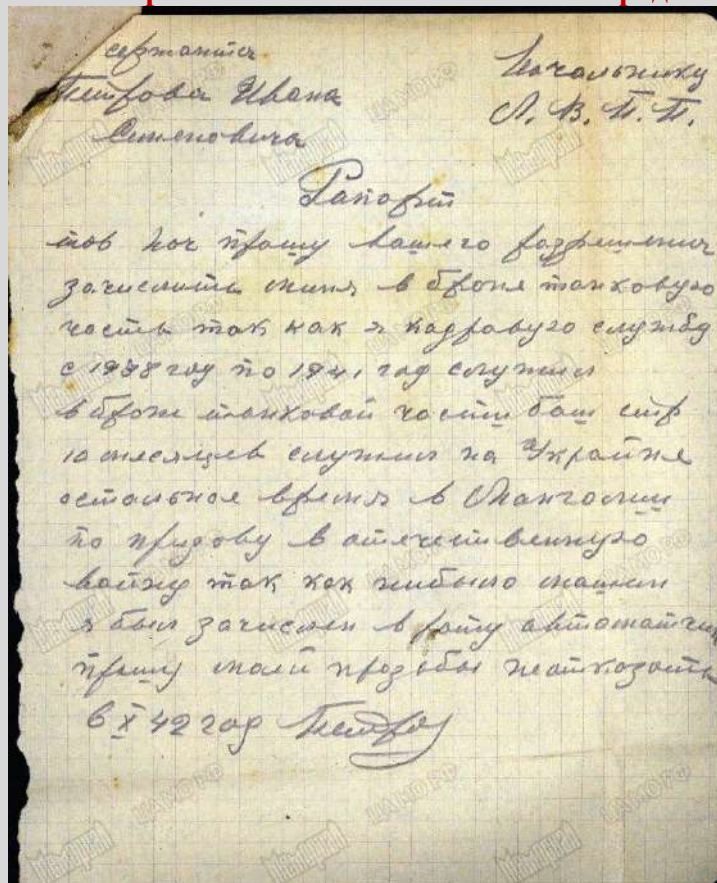 сержанта
Петрова Ивана
Семеновича
Начальнику
Л. В. П. П.
Рапорт
тов нач прошу вашего разрешения
зачислить миня в броне танковую
часть так как я кадравую службу
с 1938 год по 1941 год служил
в броне танковой части баш стр
10 месяцев служил на Украине
остальное время в Мангомии
по призову в отечественную
войну так как нибыло машин
я был зачислен в роту автоматчик
прошу моей прозьбы неотказать
6 X 42 год Петров
ЦАМО.РФ
Мемориал